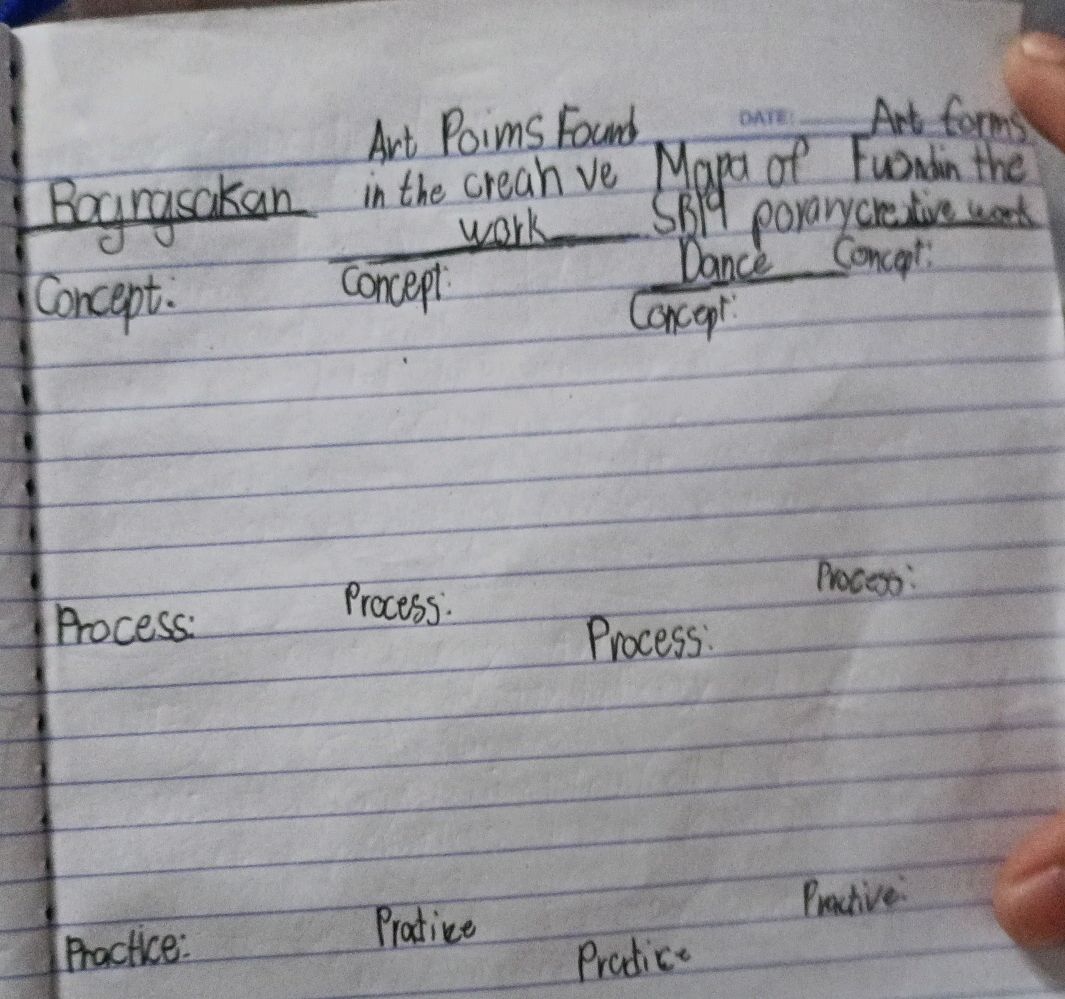 DATE: Art forms
Art Poims Found
Bagngsakan in the creah ve Mapa of Fuondin the
work SB19 porary creative work
Dance Concept:
Concept: Concept:
Concept:
Process:
Process: Process:
Process:
Practive:
Pratice
Practice: Pratice